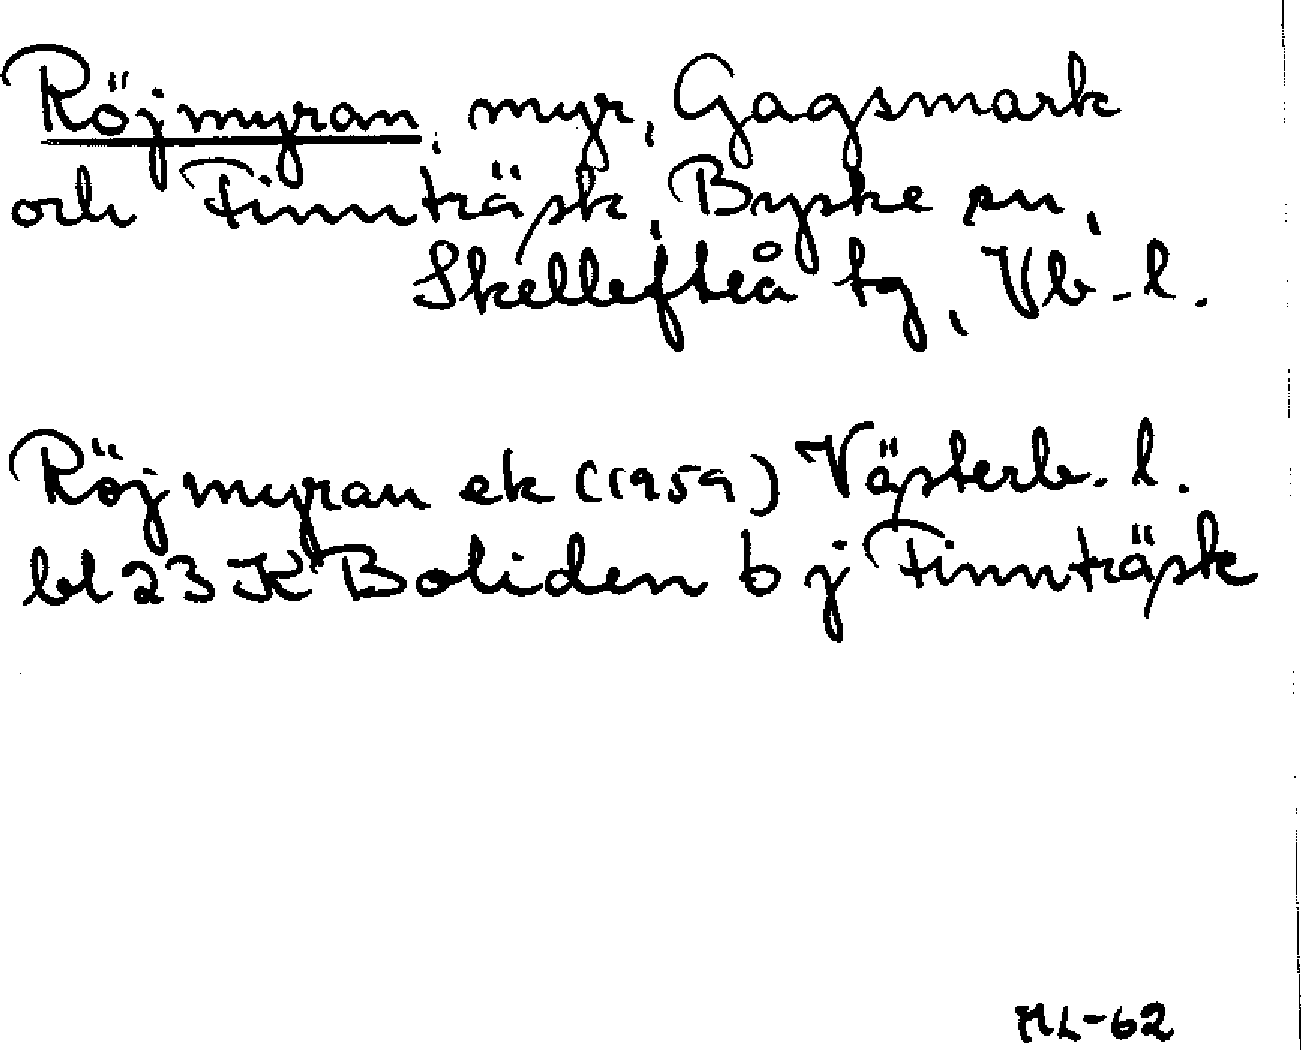 Röjmyran, myr, Gagsmark
och Finnträsk, Byske sn,
Skellefteå tg, Vb. l.
Röjmyran ek (1959) Västerb. l.
bl 23 K Boliden 6 j Finnträsk
ML-62